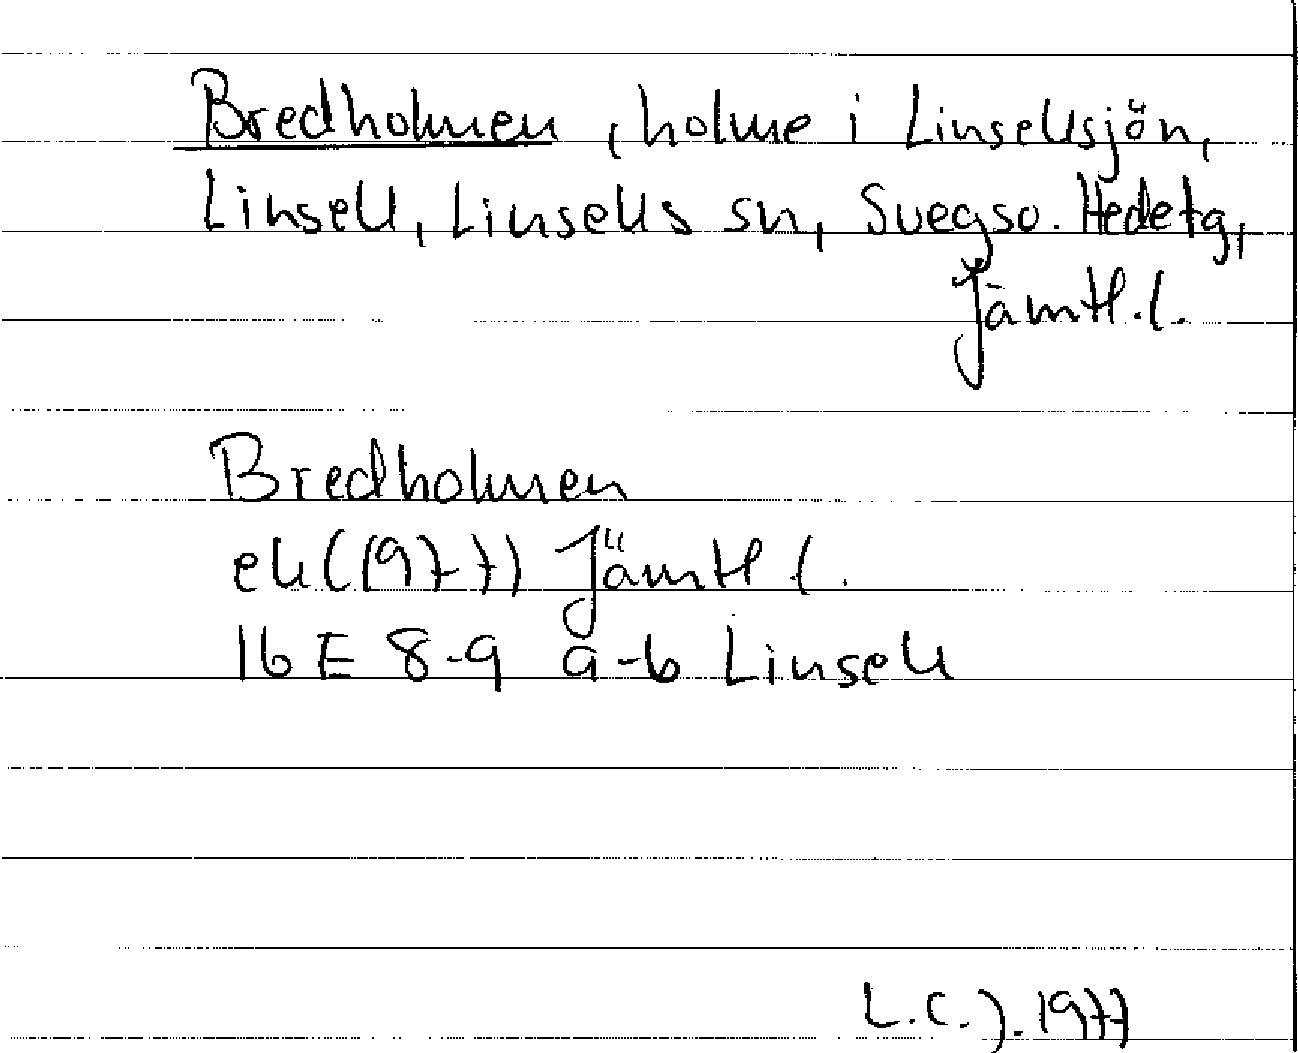 Bredholmen, holme i Linsellsjön,
Linsell, Linsells sn, Svegs o. Hede tg,
Jämtl.l.
Bredholmen
ek (1977) Jämtl l.
16 E 8-9 a-b Linsell
L.C.J. 1977